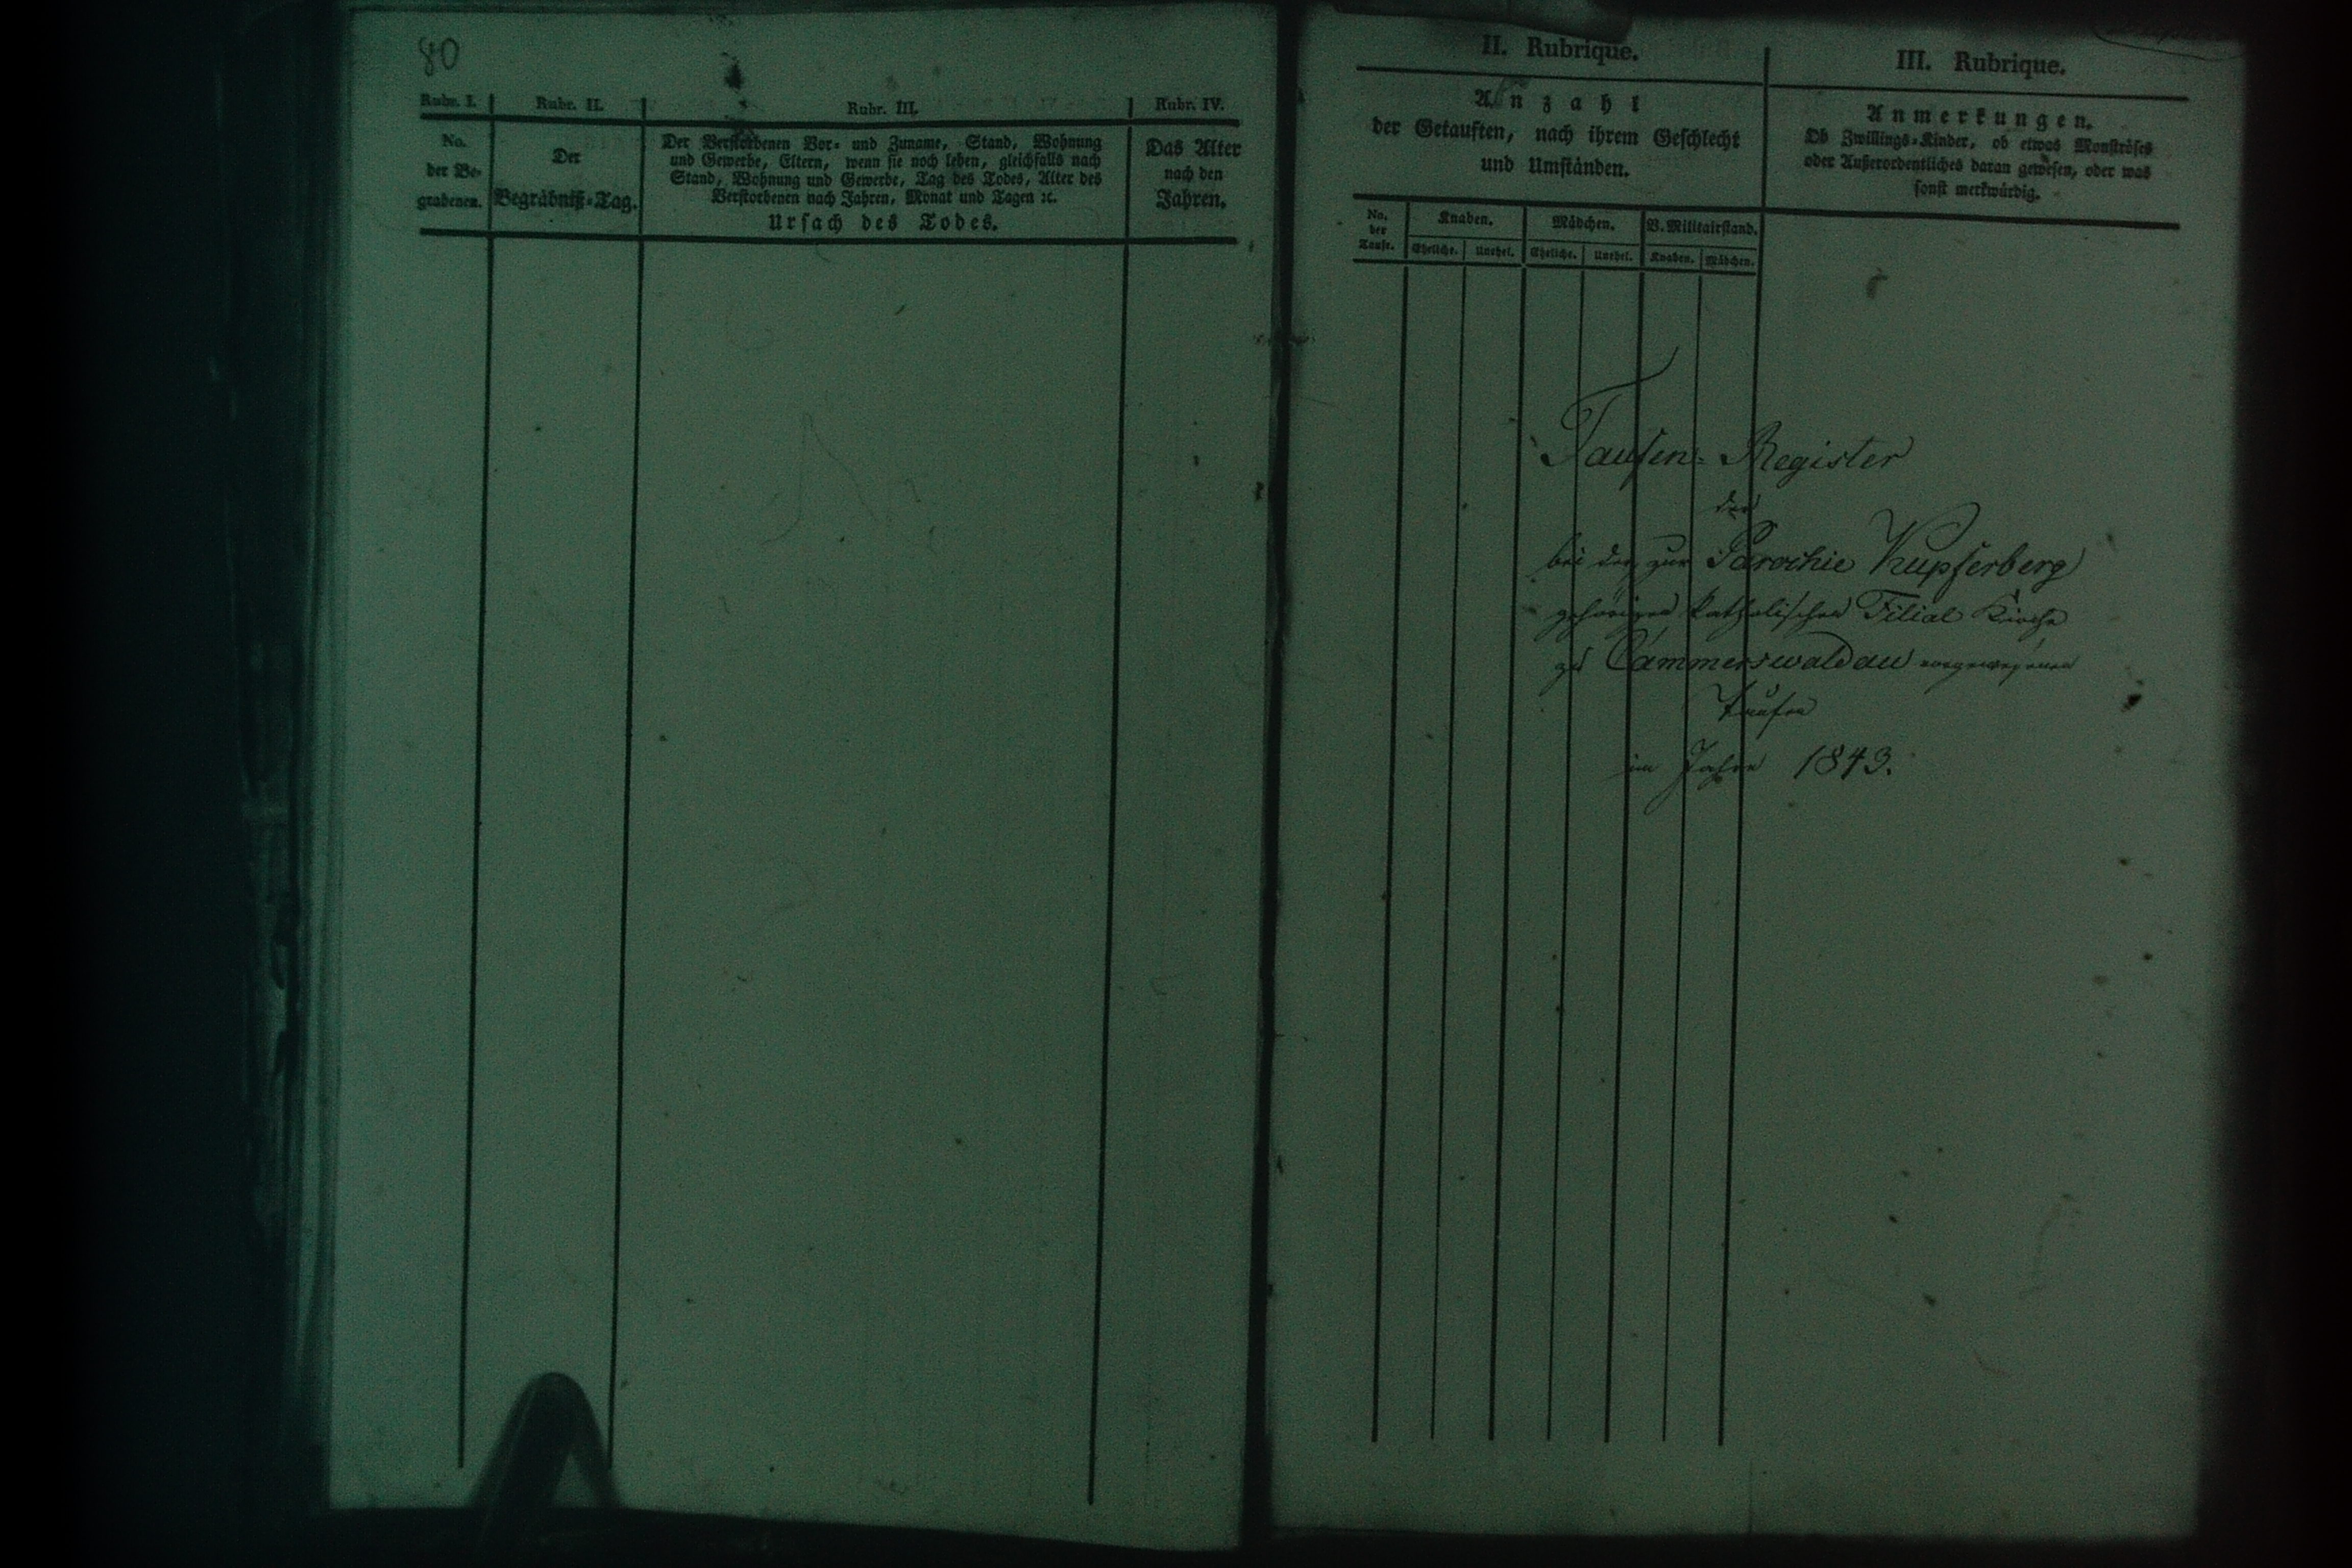 80
Rubr. I.
Rubr. II.
Rubr. III.
Rubr. IV.
No.
der Be-
grabenen.
Der
Begräbniß-Tag.
Der Verstorbenen Vor- und Zuname, Stand, Wohnung
und Gewerbe, Eltern, wenn sie noch leben, gleichfalls nach
Stand, Wohnung und Gewerbe, Tag des Todes, Alter des
Verstorbenen nach Jahren, Monat und Tagen ꝛc.
Ursach des Todes.
Das Alter
nach den
Jahren.
II. Rubrique.
Anzahl
der Getauften, nach ihrem Geschlecht
und Umständen.
III. Rubrique.
Anmerkungen.
Ob Zwillings-Kinder, ob etwas Monströses
oder Außerordentliches daran gewesen, oder was
sonst merkwürdig.
No.
der
Taufe.
Knaben.
Mädchen.
V. Militairstand.
Eheliche. Unehel. Eheliche. Unehel. Knaben. Mädchen.
Taufen-Register
der
bei der zur Parochie Kupferberg
gehörigen katholischen Filial Kirche
zu Cammerswaldau
Taufen
im Jahre 1843.